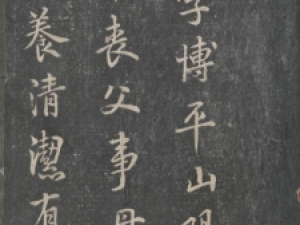 字博平山陽
喪父事母
養清潔有